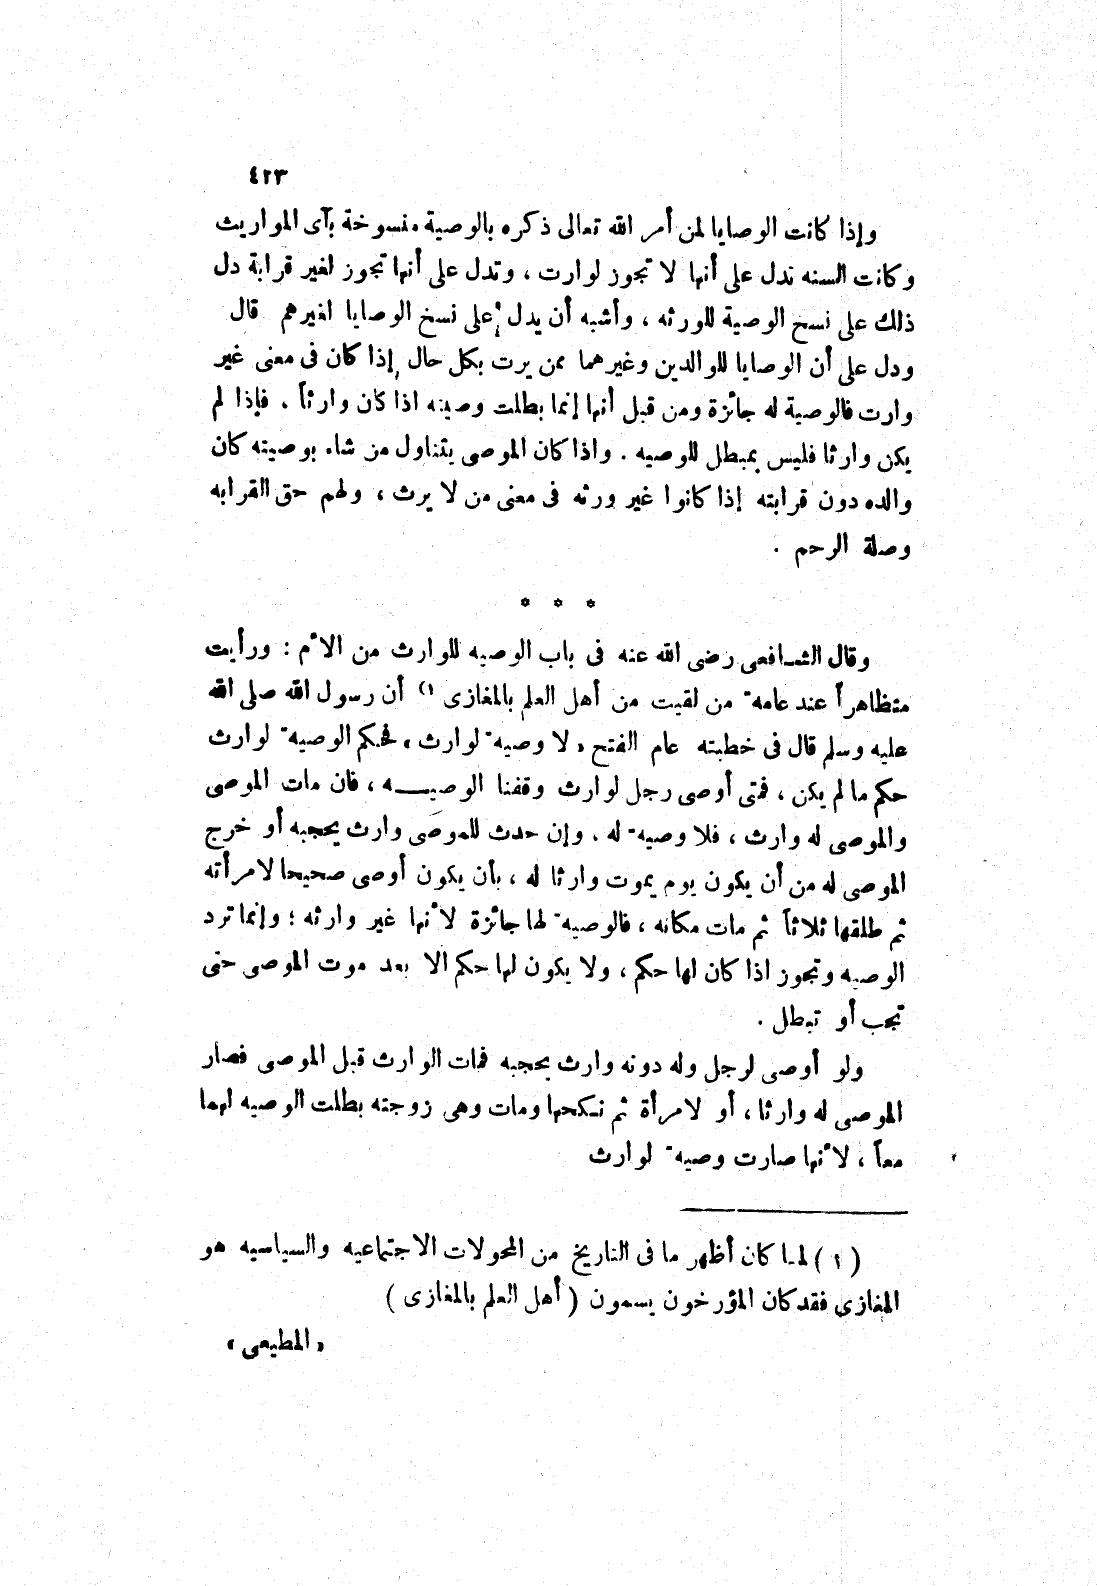 ٤٢٣
وإذا كانت الوصايا لمن أمر الله تعالى ذكره بالوصية منسوخة بآى المواريث
وكانت السنه تدل على أنها لا تجوز لوارت ، وتدل على أنها تجوز لغير قرابة دل
ذلك على نسخ الوصية للورثه ، وأشبه أن يدل على نسخ الوصايا لغيرهم قال
ودل على أن الوصايا للوالدين وغيرهما ممن يرت بكل حال إذا كان فى معنى غير
وارت فالوصية له جائزة ومن قبل أنها إنما بطلت وصيته اذا كان وارثاً . فإذا لم
يكن وارثا فليس بمبطل للوصيه . واذا كان الموصى يتناول من شاء بوصيته كان
والده دون قرابته إذا كانوا غير ورثه فى معنى من لا يرث ، ولهم حق القرابه
وصلة الرحم .
* * *
وقال الشافعى رضى الله عنه فى باب الوصيه للوارث من الأم : ورأيت
متظاهراً عند عامه من لقيت من أهل العلم بالمغازى (١) أن رسول الله صلى الله
عليه وسلم قال فى خطبته عام الفتح « لا وصيه لوارث » فحكم الوصيه لوارث
حكم ما لم يكن ، فمتى أوصى رجل لوارث وقفنا الوصيـــه ، فان مات الموصى
والموصى له وارث ، فلا وصيه له . وإن حدث للموصى وارث يحجبه أو خرج
الموصى له من أن يكون يوم يموت وارثا له ، بأن يكون أوصى صحيحا لامرأته
ثم طلقها ثلاثاً ثم مات مكانه ، فالوصيه لها جائزة لأنها غير وارثه ؛ وإنما ترد
الوصيه وتجوز اذا كان لها حكم ، ولا يكون لها حكم الا بعد موت الموصى حتى
تجب أو تبطل .
ولو أوصى لرجل وله دونه وارث يحجبه فمات الوارث قبل الموصى فصار
الموصى له وارثا ، أو لامرأة ثم نكحها ومات وهى زوجته بطلت الوصيه لهما
معاً ، لأنها صارت وصيه لوارث
(١) لما كان أظهر ما فى التاريخ من المحولات الاجتماعيه والسياسيه هو
المغازى فقد كان المؤرخون يسمون (أهل العلم بالمغازى)
« المطيعى »